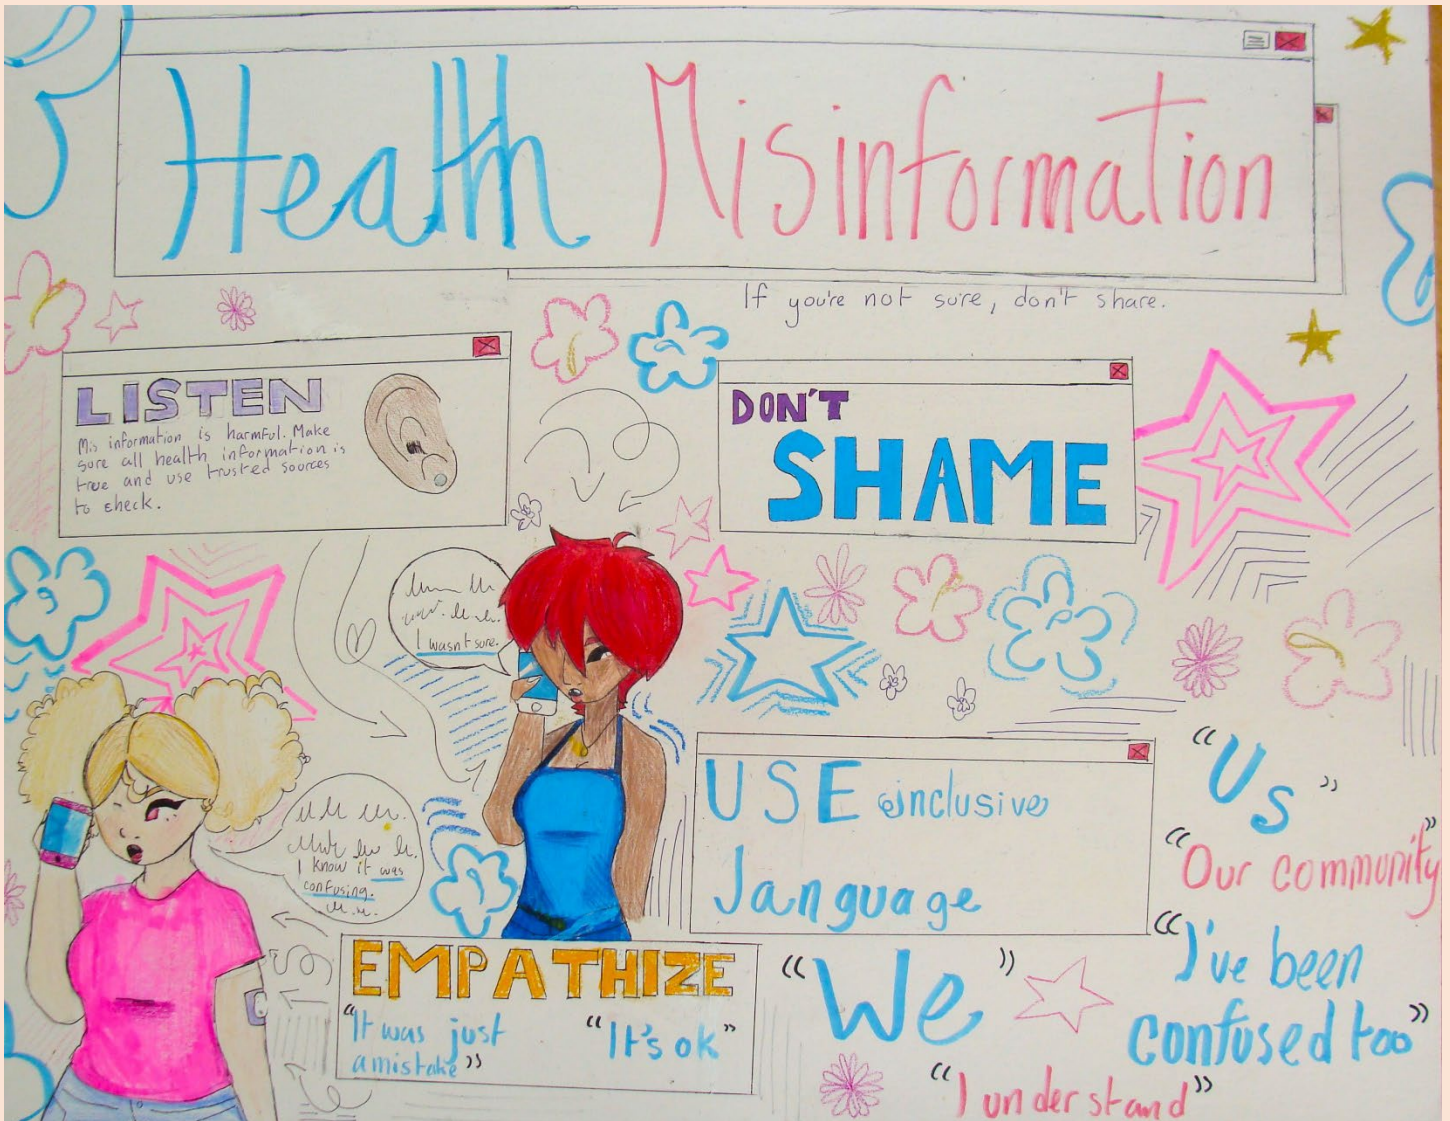 Health Misinformation
If you're not sure, don't share.
LISTEN
Mis information is harmful. Make
sure all health information is
true and use trusted sources
to check.
DON'T
SHAME
I wasn't sure.
I know it was
confusing.
USE inclusive
language
"Us"
"Our community"
"We"
"I've been
confused too"
"I understand"
EMPATHIZE
"It was just
a mistake"
"It's ok"